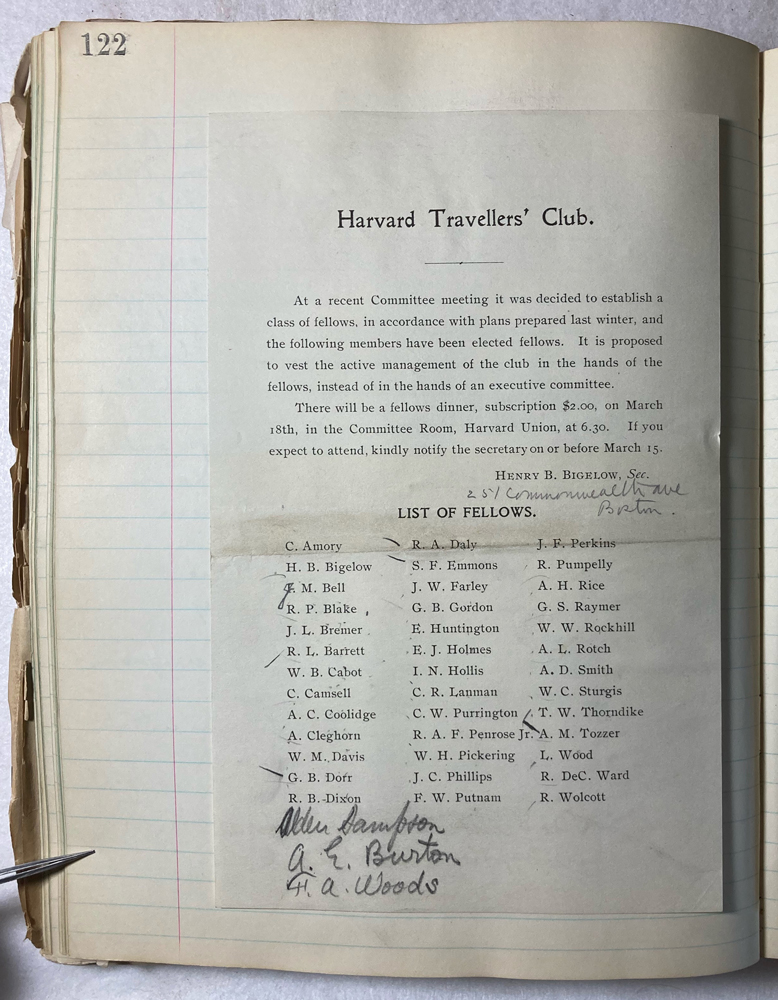 122
Harvard Travellers' Club.
At a recent Committee meeting it was decided to establish a
class of fellows, in accordance with plans prepared last winter, and
the following members have been elected fellows. It is proposed
to vest the active management of the club in the hands of the
fellows, instead of in the hands of an executive committee.
There will be a fellows dinner, subscription $2.00, on March
18th, in the Committee Room, Harvard Union, at 6.30. If you
expect to attend, kindly notify the secretary on or before March 15.
HENRY B. BIGELOW, Sec.
251 Commonwealth ave
Boston.
LIST OF FELLOWS.
C. Amory
H. B. Bigelow
J. M. Bell
R. P. Blake
J. L. Bremer
R. L. Barrett
W. B. Cabot
C. Camsell
A. C. Coolidge
A. Cleghorn
W. M. Davis
G. B. Dorr
R. B. Dixon
R. A. Daly
S. F. Emmons
J. W. Farley
G. B. Gordon
E. Huntington
E. J. Holmes
I. N. Hollis
C. R. Lanman
C. W. Purrington
R. A. F. Penrose Jr.
W. H. Pickering
J. C. Phillips
F. W. Putnam
J. F. Perkins
R. Pumpelly
A. H. Rice
G. S. Raymer
W. W. Rockhill
A. L. Rotch
A. D. Smith
W. C. Sturgis
T. W. Thorndike
A. M. Tozzer
L. Wood
R. DeC. Ward
R. Wolcott
Alden Sampson
A. E. Burton
F. A. Woods